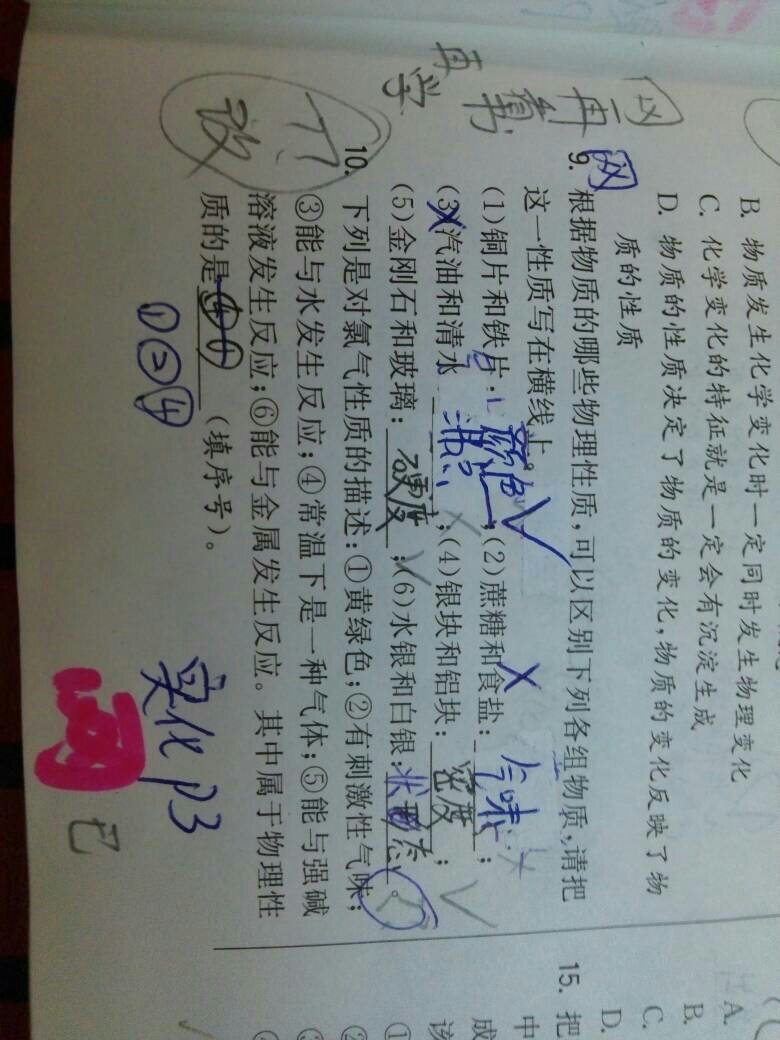 B. 物质发生化学变化时一定同时发生物理变化
C. 化学变化的特征就是一定会有沉淀生成
D. 物质的性质决定了物质的变化,物质的变化反映了物
质的性质
区 再看书
再学
网
9. 根据物质的哪些物理性质,可以区别下列各组物质,请把
这一性质写在横线上。
(1)铜片和铁片: 颜色 ;(2)蔗糖和食盐: 气味 ;
(3)汽油和清水 沸点 ;(4)银块和铝块: 密度 ;
(5)金刚石和玻璃: 硬度 ;(6)水银和白银: 状态 。
10. 下列是对氯气性质的描述:①黄绿色;②有刺激性气味;
③能与水发生反应;④常温下是一种气体;⑤能与强碱
溶液发生反应;⑥能与金属发生反应。其中属于物理性
质的是 (填序号)。
①②④
实化 P3
已
15. 把
A.
B.
C.
D.
中
成
该
①
②
③